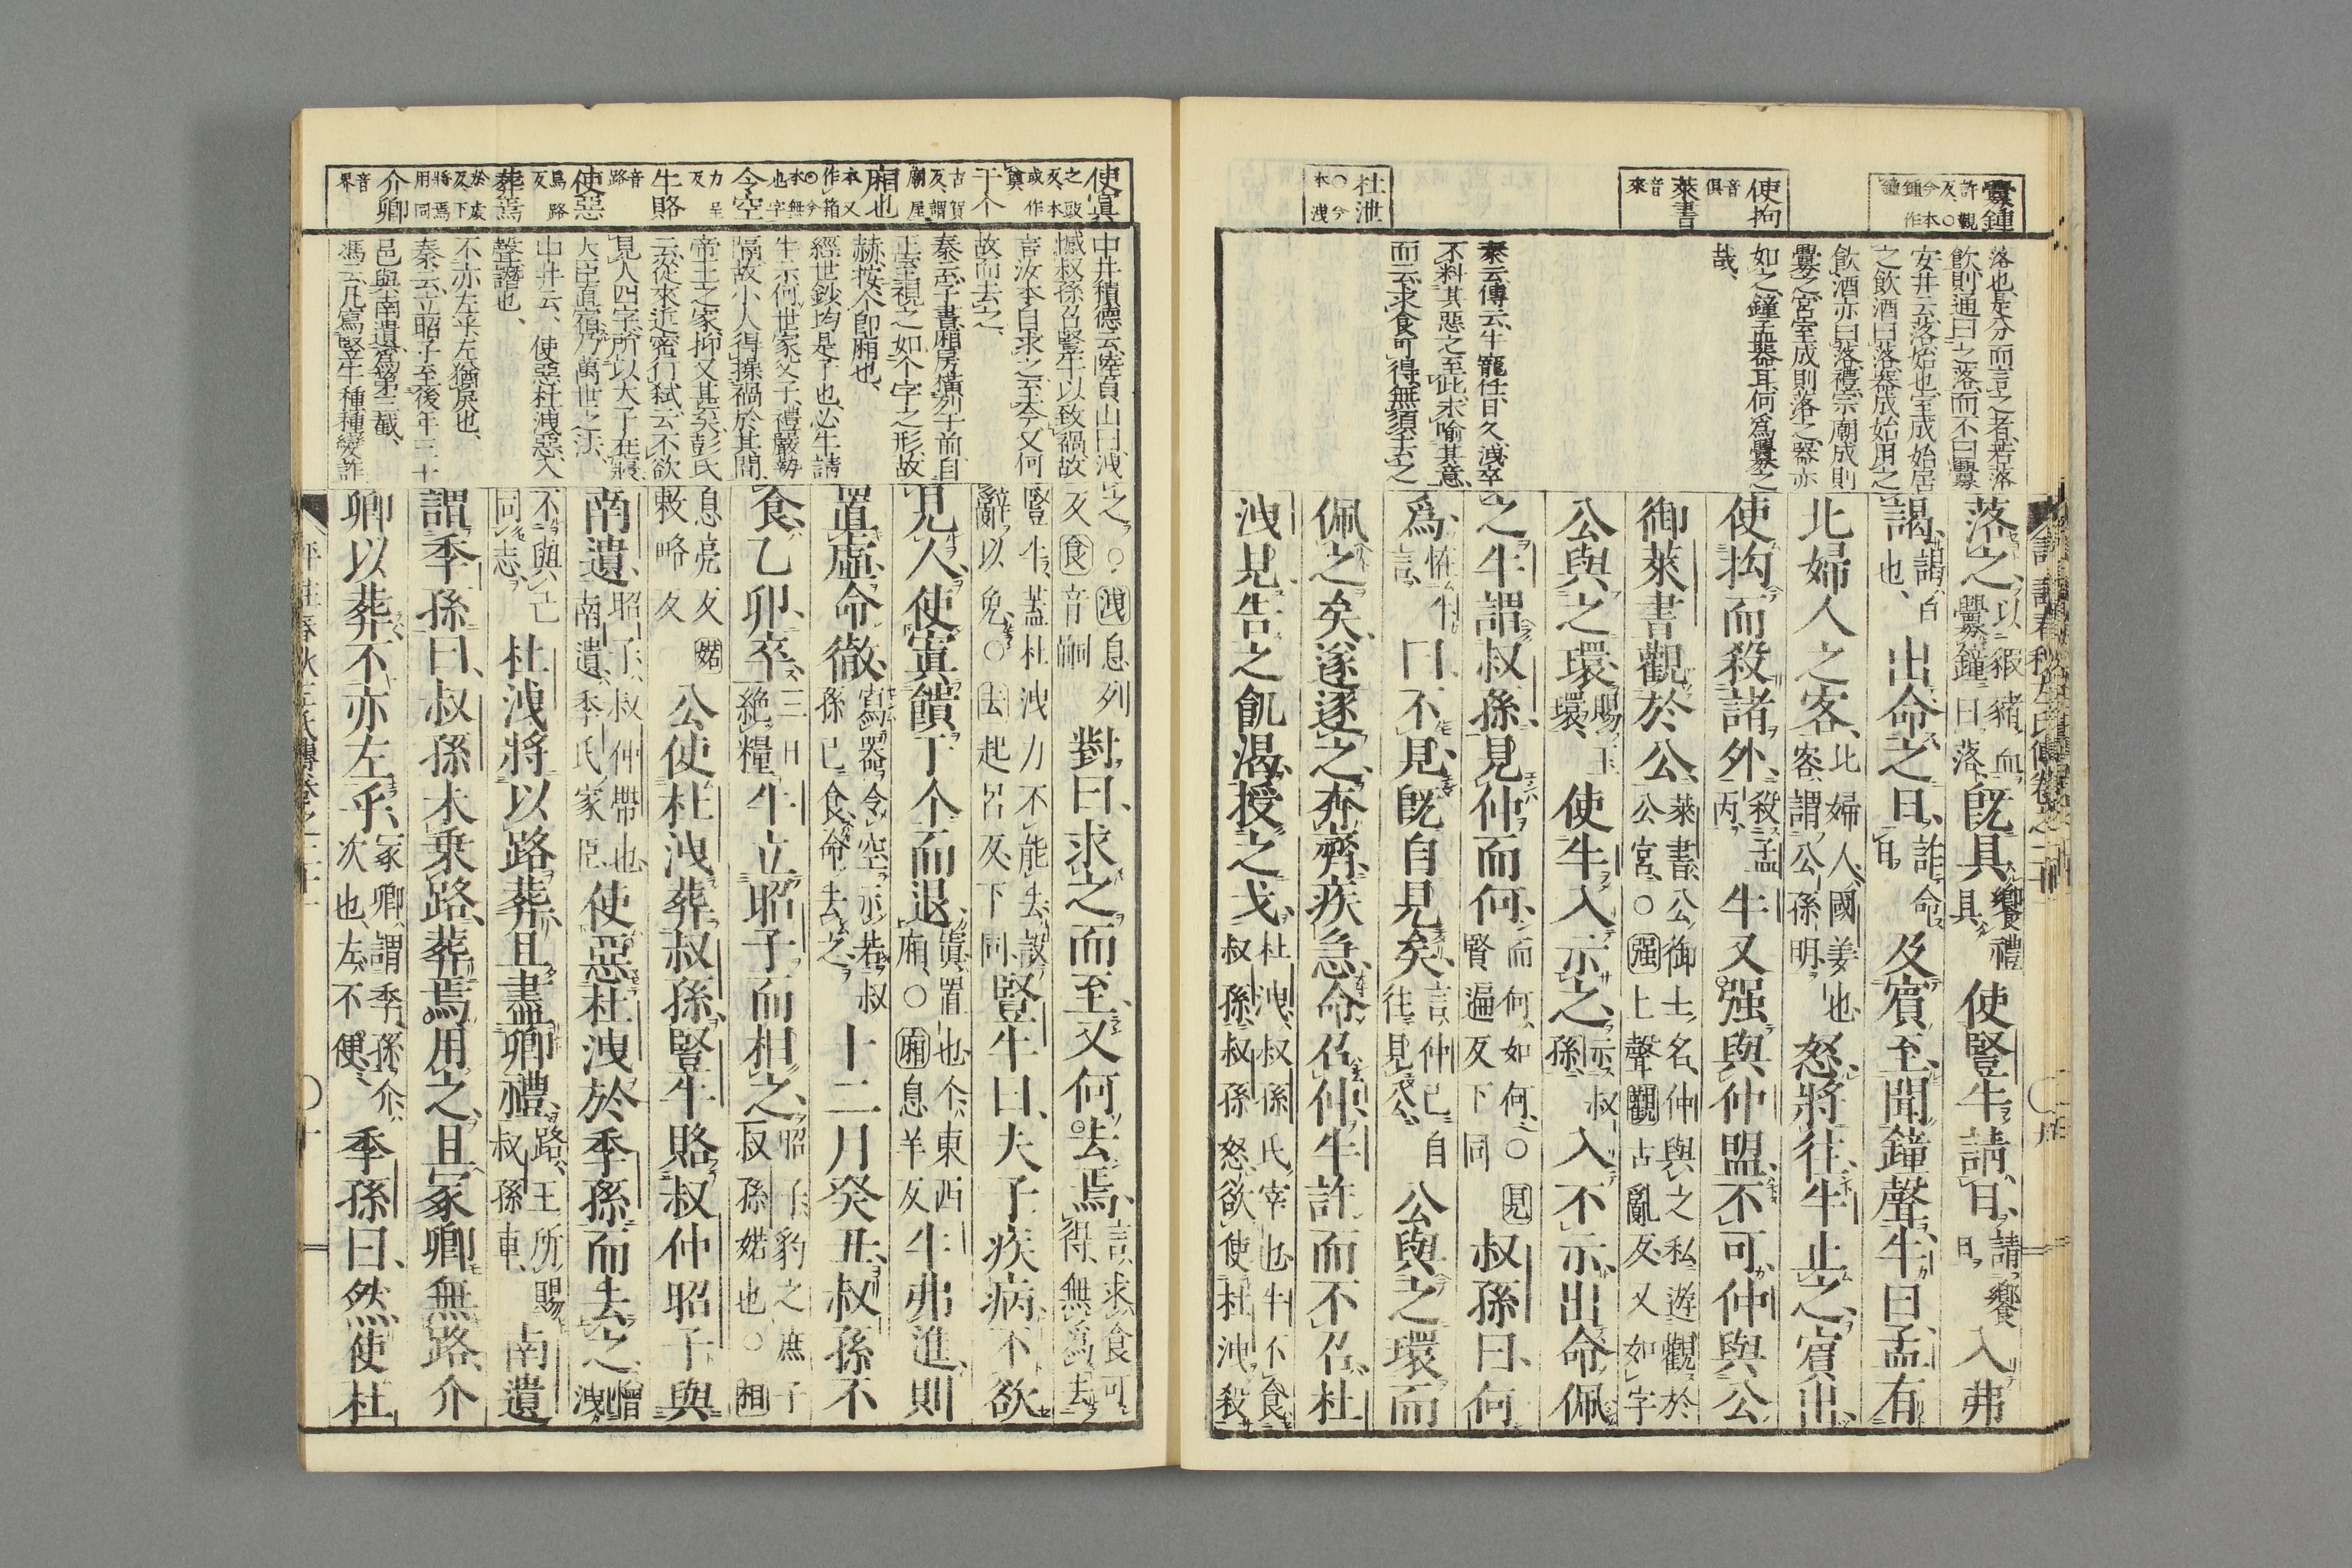 釁鍾
許觀反○今本作釁鐘
使拘
音俱
萊書
音來
杜泄
○今本洩
落也是分而言之者若落
飲則通曰之落而不曰釁
安井云落始也室成始居
之飲酒曰落器成始用之
飲酒亦曰落禮宗廟成則
釁之宮室成則落之器亦
如之鐘盂器耳何爲釁之
哉
秦云傳云牛寵任日久洩卒
不料其惡之至此未喻其意
而云求食可得無須去之
落之以豭豬血釁鐘曰落既具饗禮具使豎牛請日請饗日入弗
謁謁白也出命之日詐命日及賓至聞鐘聲牛曰孟有
北婦人之客北婦人國姜也客謂公孫明怒將往牛止之賓出
使拘而殺諸外殺孟丙牛又强與仲盟不可仲與公
御萊書觀於公萊書公御士名仲與之私遊觀於公宮○强上聲觀古亂反又如字
公與之環賜玉環使牛入示之示叔孫入不示出命佩
之牛謂叔孫見仲而何而何如何○見賢遍反下同叔孫曰何
爲怪牛言曰不見既自見矣言仲已自往見公公與之環而
佩之矣遂逐之奔齊疾急命召仲牛許而不召杜
洩見告之飢渴授之戈杜洩叔孫氏宰也牛不食叔孫叔孫怒欲使杜洩殺
使寘
之豉反本或作寘
于个
古賀反謂廟屋
廂也
本又作箱○今本無也字
令空
力呈反
牛賂
音路
使惡
烏路反
葬焉
於虔反下將焉用同
介卿
音界
中井積德云陸貞山曰洩
憾叔孫召豎牛以致禍故
言汝本自求之至今又何
故而去之
秦云子書廂房橫列于前自
正室視之如个字之形故
赫按个卽廂也
經世鈔均是子也必牛請
牛示何世家父子禮嚴勢
隔故小人得操禍於其間
帝王之家抑又甚矣彭氏
云從來近密行弑云不欲
見人四字所以大子在寢
大臣直宿乃萬世之法
中井云使惡杜洩惡大
聲譖也
不亦左乎左猶戾也
秦云立昭子至後年三十
邑與南遺爲第三截
馮云凡寫豎牛種種變詐
之○洩息列反食音嗣對曰求之而至又何去焉言求食可得無爲去
豎牛蓋杜洩力不能去設辭以免○去起呂反下同豎牛曰夫子疾病不欲
見人使寘饋于个而退寘置也个東西廂○廂息羊反牛弗進則
置虛命徹寫器令空示若叔孫已食命去之十二月癸丑叔孫不
食乙卯卒三日絶糧牛立昭子而相之昭子豹之庶子叔孫婼也○相
息亮反婼敕略反公使杜洩葬叔孫豎牛賂叔仲昭子與
南遺昭子叔仲帶也南遺季氏家臣使惡杜洩於季孫而去之憎洩
不與已同志杜洩將以路葬且盡卿禮路王所賜叔孫車南遺
謂季孫曰叔孫未乘路葬焉用之且冢卿無路介
卿以葬不亦左乎冢卿謂季孫介次也左不便季孫曰然使杜